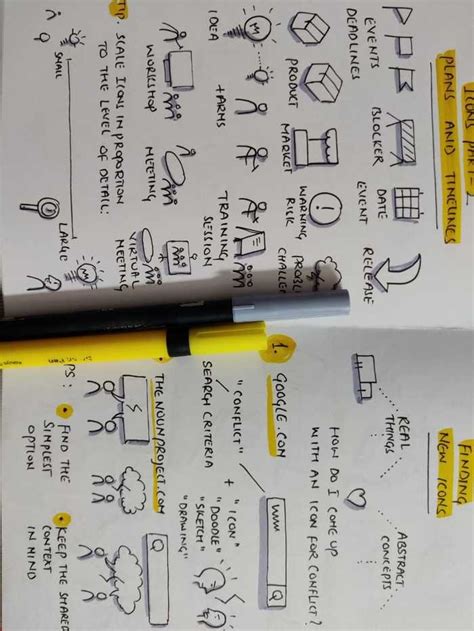 PLANS AND TIMELINES
EVENTS
DEADLINES
BLOCKER
DATE
EVENT
RELEASE
PRODUCT
MARKET
WARNING
RISK
IDEA
+ARMS
TRAINING
SESSION
WORKSHOP
MEETING
VIRTUAL
MEETING
TIP: SCALE ICONS IN PROPORTION
TO THE LEVEL OF DETAIL.
SMALL
LARGE
FINDING
NEW ICONS
REAL
THINGS
ABSTRACT
CONCEPTS
HOW DO I COME UP
WITH AN ICON FOR CONFLICT?
1. GOOGLE.COM
"CONFLICT" + "ICON"
"DOODLE"
"SKETCH"
"DRAWING"
SEARCH CRITERIA
THE NOUNPROJECT.COM
PS:
• FIND THE
SIMPLEST
OPTION
• KEEP THE SHARED
CONTEXT
IN MIND